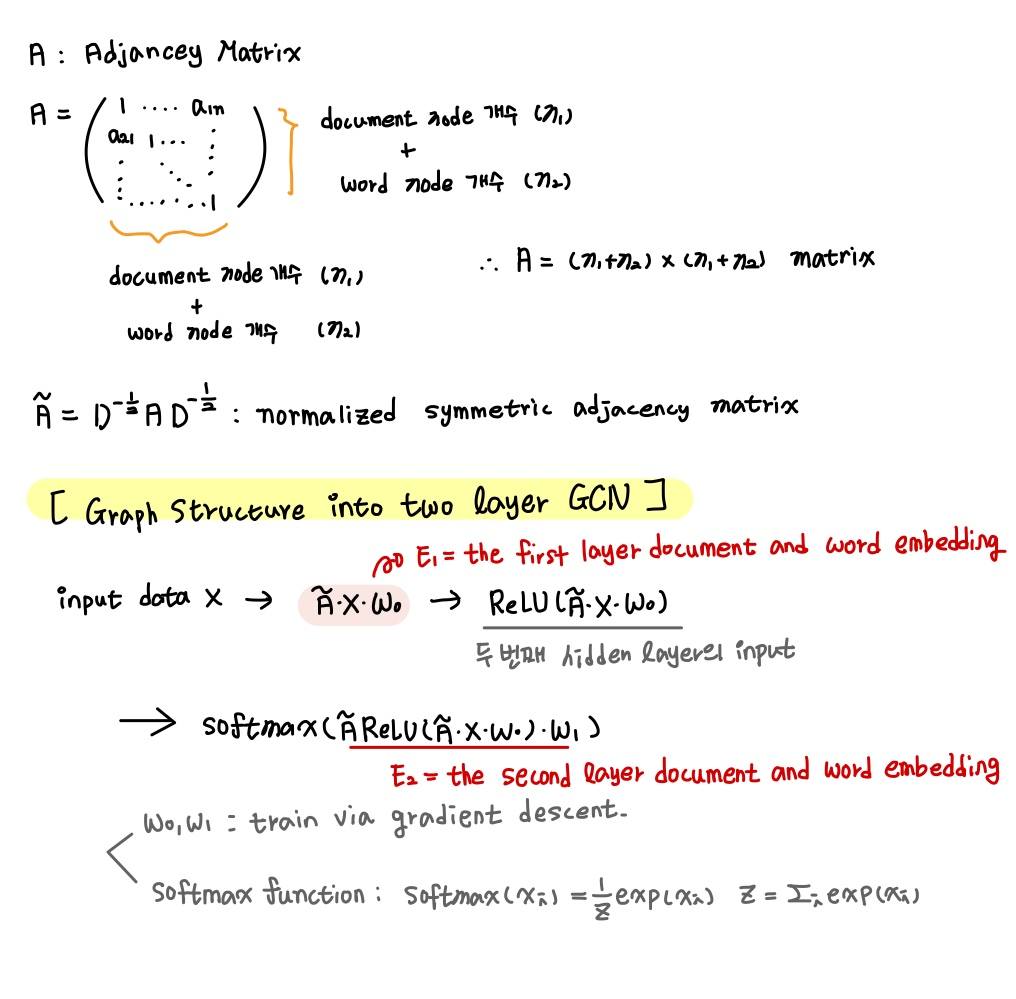 A : Adjancey Matrix
A = ( 1 ···· a1n
a21 1 ···
1 )
document node 개수 (n₁)
+
word node 개수 (n₂)
document node 개수 (n₁)
+
word node 개수 (n₂)
∴ A = (n₁+n₂) × (n₁+n₂) matrix
Ã = D^-½ A D^-½ : normalized symmetric adjacency matrix
[ Graph Structure into two layer GCN ]
E₁ = the first layer document and word embedding
input data X → Ã·X·W₀ → ReLU(Ã·X·W₀)
두번째 hidden layer의 input
→ softmax(Ã ReLU(Ã·X·W₀)·W₁)
E₂ = the second layer document and word embedding
W₀, W₁ : train via gradient descent.
Softmax function : Softmax(xᵢ) = 1/Z exp(xᵢ) Z = Σᵢ exp(xᵢ)